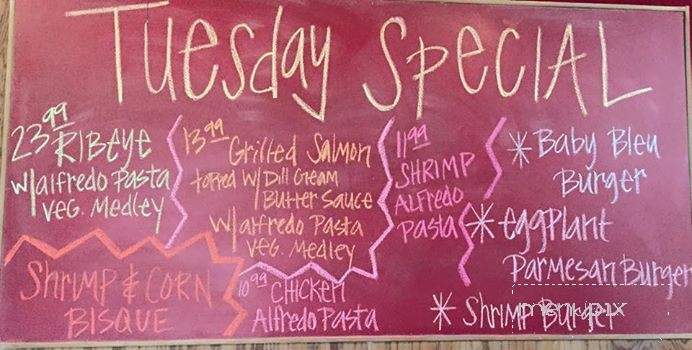 Tuesday Special
23.99 Ribeye
w/alfredo Pasta
Veg. Medley
13.99 Grilled Salmon
topped w/ Dill Cream
Butter Sauce
w/alfredo Pasta
Veg. Medley
11.99
SHRIMP
ALFREDO
PASTA
* Baby Bleu
Burger
* eggplant
Parmesan Burger
* Shrimp Burger
Shrimp & CORN
BISQUE
10.99 CHICKEN
Alfredo Pasta